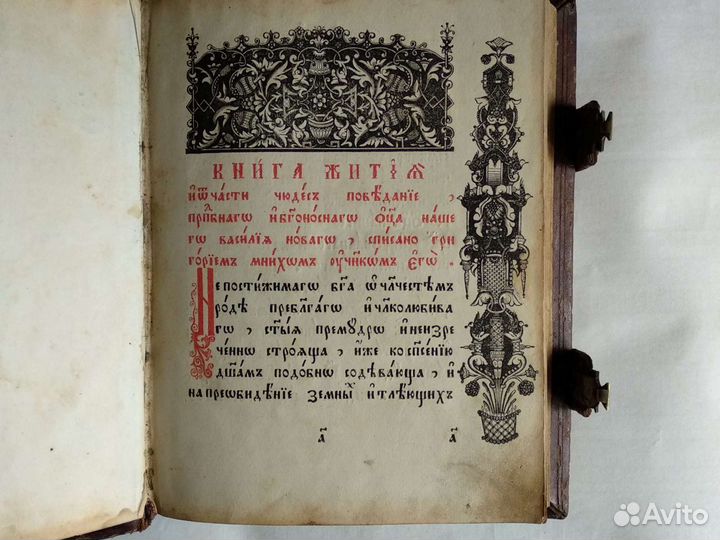 КНИ́ГА ЖИТІѦ̀
И҆ Ѿ ЧА́СТИ ЧЮДЕ́СЪ ПОВѢ́ДАНІЕ ,
ПРПⷣБНАГѠ И҆ БГ҃ОНО́СНАГѠ Ѻ҆ЦА̀ НА́ШЕ
ГѠ ВАСИ́ЛІѦ НО́ВАГѠ , СПИ́САНО ГРИ
ГО́РІЕМЪ МНИ́ХОМЪ ОУ҆ЧН҃КО́МЪ Є҆ГѠ̀ .
НЕПОСТИЖИ́МАГѠ БГ҃А Ѡ҆ ЧЛ҃ЧЕСТѢМЪ
РО́ДѢ ПРЕБЛГ҃А́ГѠ И҆ ЧЛ҃КОЛЮБИ́ВА
ГѠ , СТ҃Ы́Ѧ ПРЕМꙊ́ДРѠ И҆ НЕИЗРЕ
ЧЕ́ННѠ СТРО́ѦЩА , И҆́ЖЕ КО СПС҃Е́НІЮ
ДШ҃А́МЪ ПОДО́БНѠ СОДѢ́ВАЮЩА , И҆
НА ПРЕѠБИ́ДѢНІЕ ЗЕМНЫ́Х И҆ ТЛѢ́ЮЩИХЪ
А҃ А҃
Avito